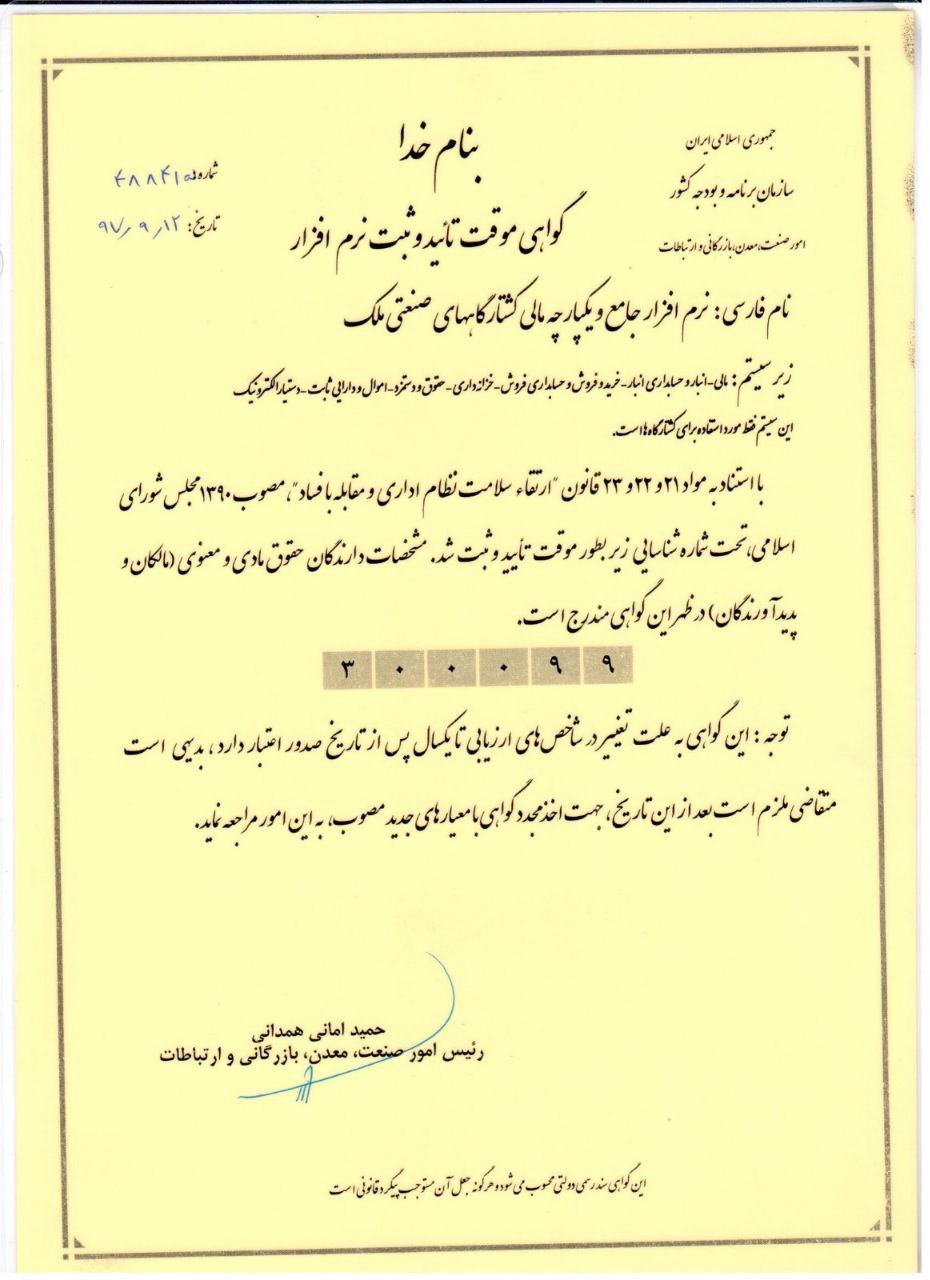 بنام خدا
جمهوری اسلامی ایران
سازمان برنامه و بودجه کشور
امور صنعت، معدن، بازرگانی و ارتباطات
شماره:
تاریخ: ۹۷/۹/۱۲
گواهی موقت تأئید و ثبت نرم افزار
نام فارسی: نرم افزار جامع و یکپارچه مالی کشتارگاههای صنعتی ملک
زیر سیستم: مالی-انبار و حسابداری انبار-خرید و فروش و حسابداری فروش-خزانه داری-حقوق و دستمزد-اموال و دارایی ثابت-دستیار الکترونیک
این سیستم فقط مورد استفاده برای کشتارگاه ها است.
با استناد به مواد ۲۱ و ۲۲ و ۲۳ قانون "ارتقاء سلامت نظام اداری و مقابله با فساد"، مصوب ۱۳۹۰ مجلس شورای
اسلامی، تحت شماره شناسایی زیر بطور موقت تأیید و ثبت شد. مشخصات دارندگان حقوق مادی و معنوی (مالکان و
پدیدآورندگان) در ظهر این گواهی مندرج است.
۳ ۰ ۰ ۰ ۹ ۹
توجه: این گواهی به علت تغییر در شاخص های ارزیابی تا یکسال پس از تاریخ صدور اعتبار دارد، بدیهی است
متقاضی ملزم است بعد از این تاریخ، جهت اخذ مجدد گواهی با معیارهای جدید مصوب، به این امور مراجعه نماید.
حمید امانی همدانی
رئیس امور صنعت، معدن، بازرگانی و ارتباطات
این گواهی سند رسمی دولتی محسوب می شود و هرگونه جعل آن مستوجب پیگرد قانونی است